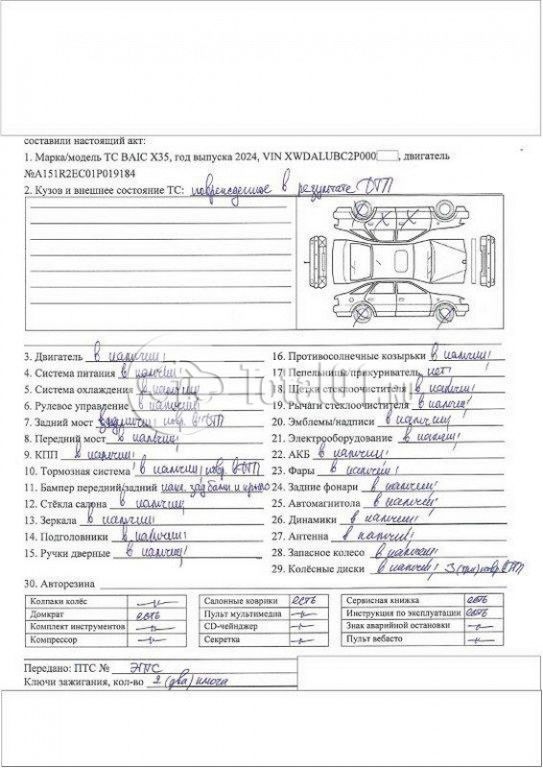 составили настоящий акт:
1. Марка/модель ТС BAIC X35, год выпуска 2024, VIN XWDALUBC2P000 , двигатель
№A151R2EC01P019184
2. Кузов и внешнее состояние ТС: поврежденное в результате ДТП
3. Двигатель в наличии!
4. Система питания в наличии!
5. Система охлаждения в наличии
6. Рулевое управление в наличии!
7. Задний мост в наличии! повр. в ДТП
8. Передний мост в наличии!
9. КПП в наличии!
10. Тормозная система в наличии! повр. в ДТП
11. Бампер передний/задний
12. Стёкла салона в наличии
13. Зеркала в наличии!
14. Подголовники в наличии!
15. Ручки дверные в наличии!
16. Противосолнечные козырьки в наличии!
17. Пепельница/прикуриватель нет!
18. Щетки стеклоочистителя в наличии!
19. Рычаги стеклоочистителя в наличии!
20. Эмблемы/надписи в наличии!
21. Электрооборудование в наличии!
22. АКБ в наличии!
23. Фары в наличии!
24. Задние фонари в наличии!
25. Автомагнитола в наличии!
26. Динамики в наличии!
27. Антенна в наличии!
28. Запасное колесо в наличии!
29. Колёсные диски в наличии! 3 (три) повр. ДТП
30. Авторезина
Колпаки колёс —
Домкрат есть
Комплект инструментов —
Компрессор —
Салонные коврики есть
Пульт мультимедиа —
CD-чейнджер —
Секретка —
Сервисная книжка есть
Инструкция по эксплуатации есть
Знак аварийной остановки —
Пульт вебасто —
Передано: ПТС № ЭПТС
Ключи зажигания, кол-во 2 (два) ключа